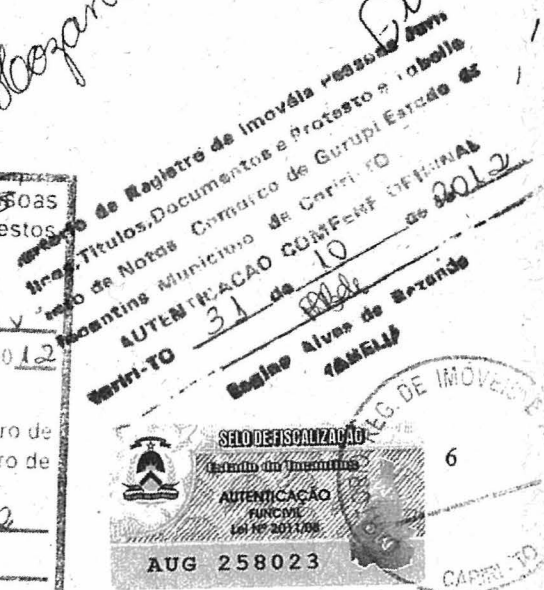 Mozan
soas
estos
012
ro de
ro de
de Registro de Imovéis Pessoas Juri
Titulos, Documentos e Protesto e Tabelio
de Notas Comarca de Gurupi Estado de
Tocantins Municipio de Cariri-TO
AUTENTICACAO CONFERE OFIRINAL
Cariri-TO 31 de 10 de 2012
Regina Alves de Rezende
TABELIÃ
SELO DE FISCALIZAÇÃO
Estado do Tocantins
AUTENTICAÇÃO
FUNCIVIL
Lei Nº 2011/08
AUG 258023
REG. DE IMÓVEIS E
6
CARIRI - TO